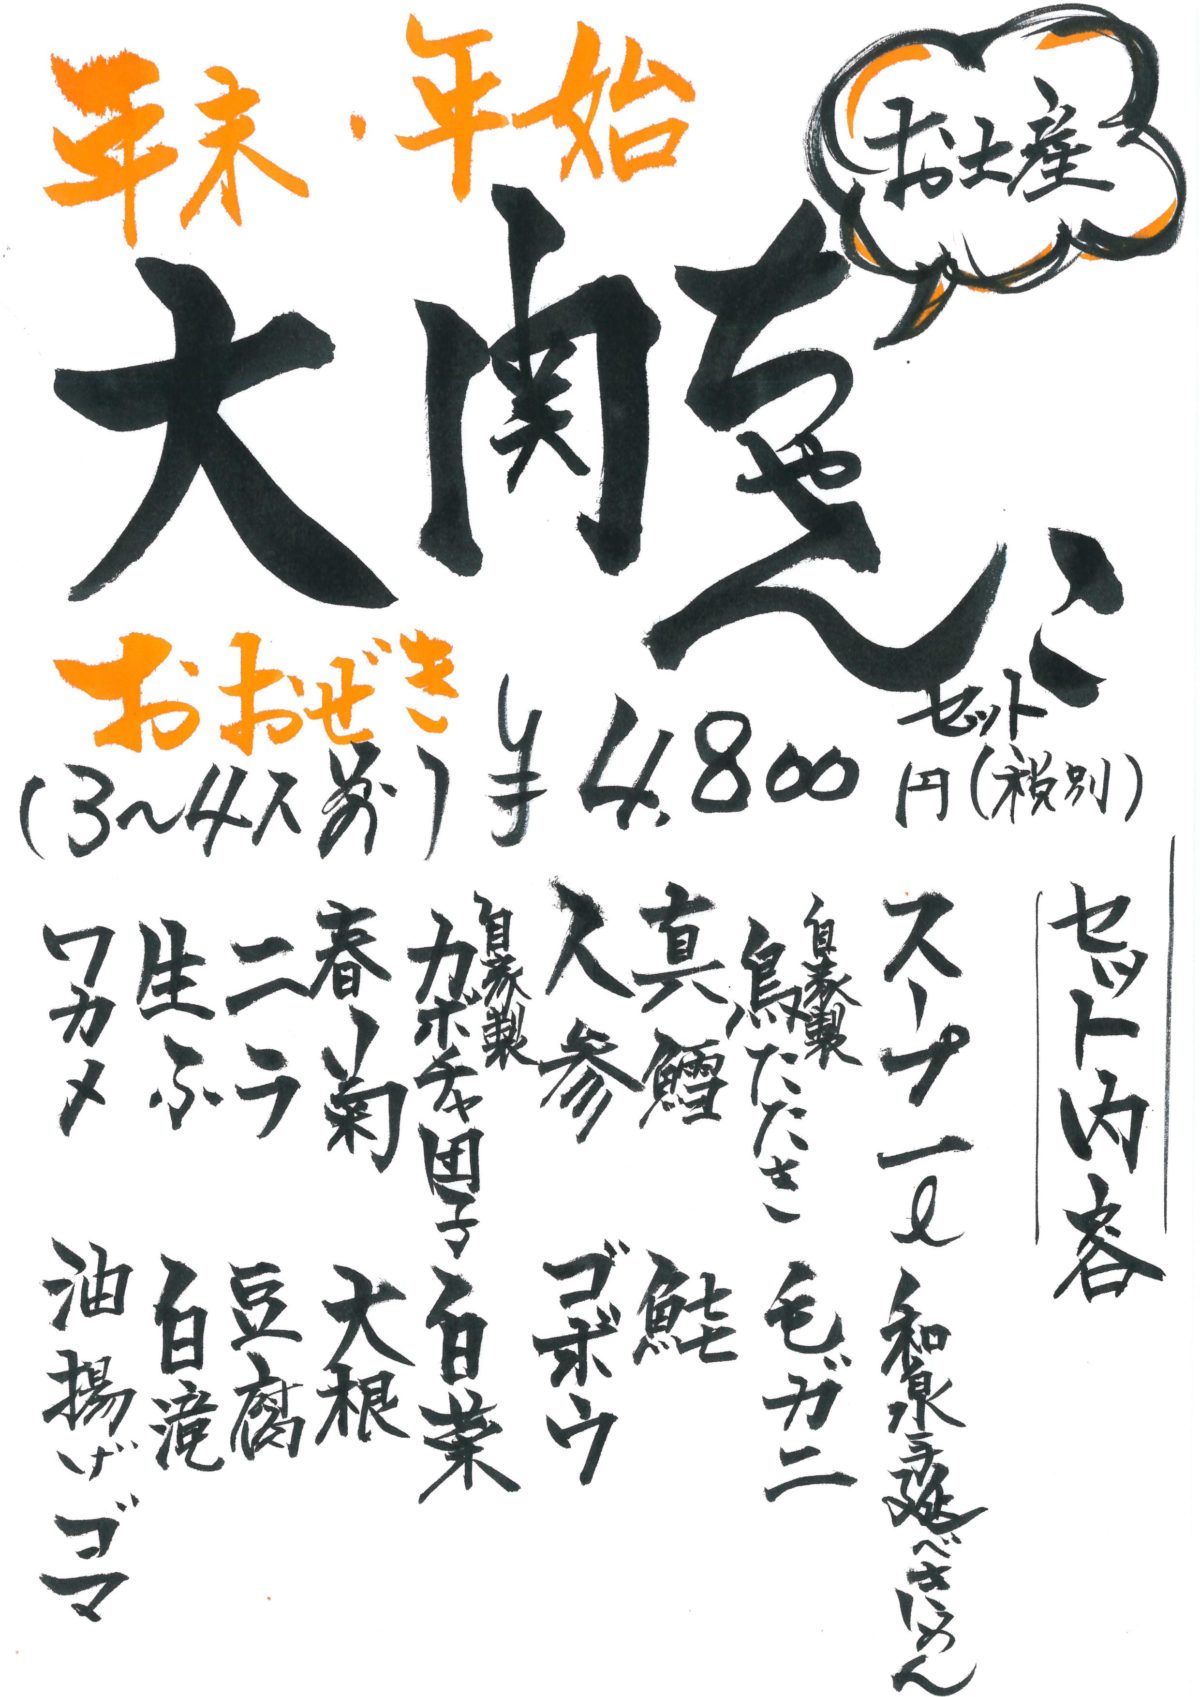 年末・年始
お土産
大関ちゃんこ
おおぜき
セット
(3〜4人前) ¥4,800円(税別)
セット内容
スープ一ℓ
和泉手延べきしめん
自家製
鳥たたき
毛ガニ
真鱈
鮭
人参
ゴボウ
自家製
カボチャ団子
白菜
春菊
大根
ニラ
豆腐
生ふ
白滝
ワカメ
油揚げ
ゴマ